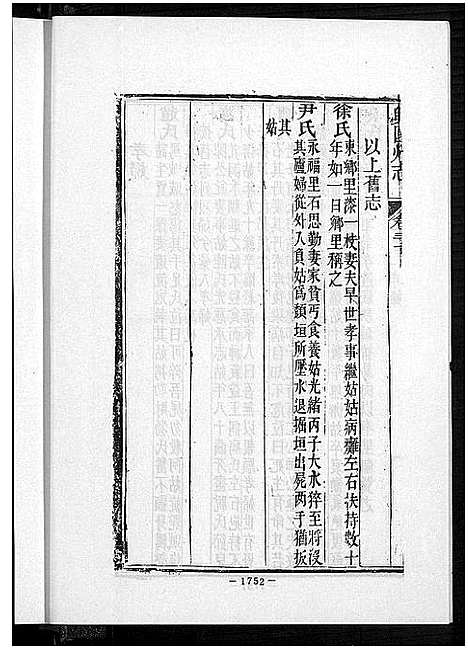 以上舊志
徐氏東鄉里漆一枝妻夫早世孝事繼姑姑病癱左右扶持數十
年如一日鄉里稱之
尹氏永福里石思勤妻家貧丐食養姑光緒丙子大水猝至將沒
其廬婦從外入負姑爲頹垣所壓水退掘垣出屍兩手猶扳
其
姑
— 1752 —